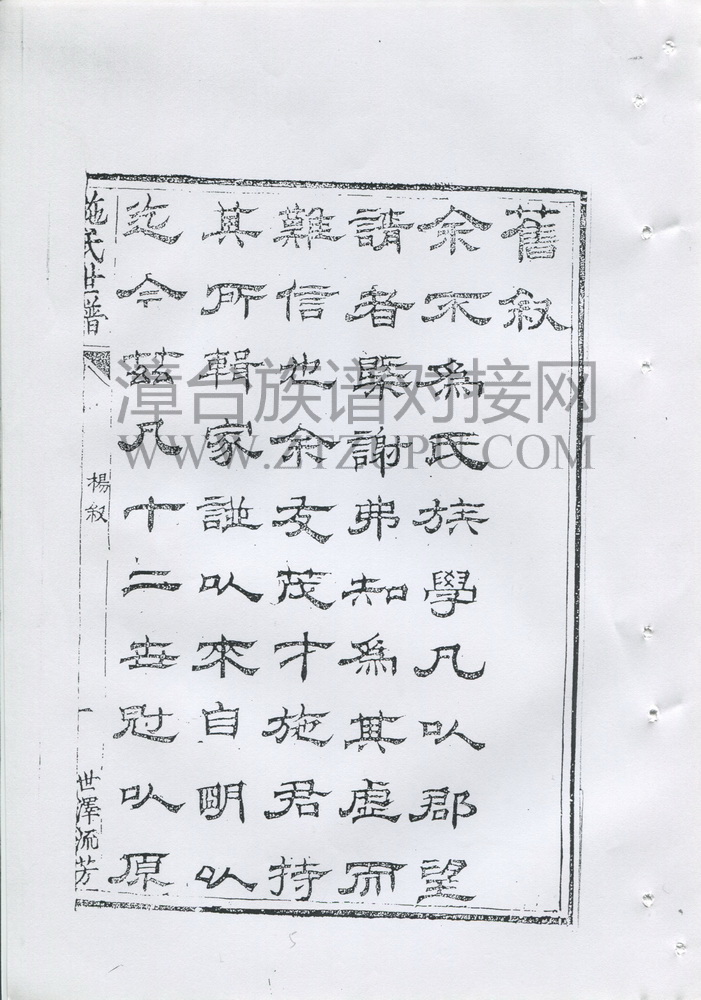 舊叙
余不為氏族學凡㕥郡望
請者槩謝弗知為其虛而
難信也余友茂才施君持
其所輯家譜㕥來自明㕥
迄今茲凡十二世慰㕥原
施氏世譜
楊叙
一
世澤流芳
漳台族谱对接网
WWW.ZTZUPU.COM
5